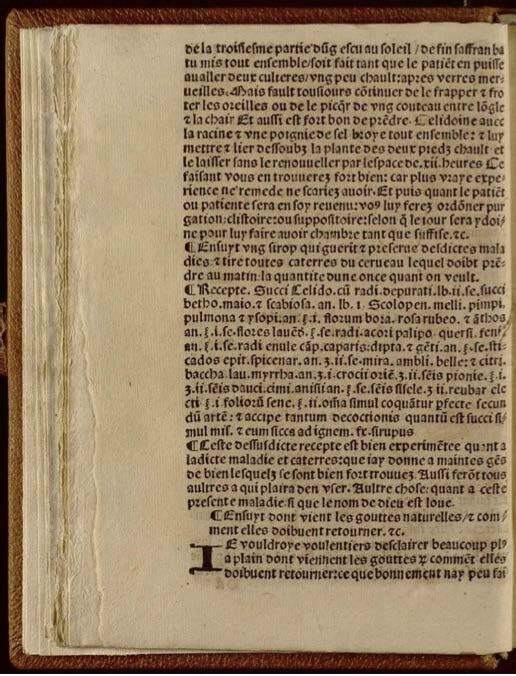 de la troisiesme partie dũg escu au soleil / de fin saffran ba
tu mis tout ensemble / soit fait tant que le patiẽt en puisse
aualler deux culieres / vng peu chault: apres verres mer-
ueilles. Mais fault tousiours cõtinuer de le frapper ⁊ fro
ter les oreilles ou de le picq̃r de vng couteau entre lõgle
⁊ la chair Et aussi est fort bon de prẽdre. Celidoine auec
la racine ⁊ vne poignie de sel broye tout ensemble: ⁊ luy
mettre ⁊ lier dessoubz la plante des deux piedz chault et
le laisser sans le renouueller par lespace de .xii. heures Ce
faisant vous en trouuerez fort bien: car plus vraye expe-
rience ne remede ne scariez auoir. Et puis quant le patiẽt
ou patiente sera en soy reuenu: voꝰ luy ferez ordõner pur
gation: clistoire: ou suppositoire: selon q̃ le iour sera ydoi-
ne pour luy faire auoir chambre tant que suffise. ⁊c.
¶ Ensuyt vng sirop qui guerit ⁊ preserue desdictes mala
dies: ⁊ tire toutes caterres du cerueau lequel doibt prẽ-
dre au matin: la quantite dune once quant on veult.
¶ Recepte. Succi Celido. cũ radi. depurati. lb. ii. se. succi
betho. maio. ⁊ scabiosa. an. lb. i. Scolopen. melli. pimpi.
pulmona ⁊ ysopi. an. ℥. i. florum bora. rosa rubeo. ⁊ ãthos
an. ℥. i. se. flores lauẽd. ℥. se. radi. acori palipo. quersi. feni/
an. ℥. i. se. radi enule cãp. caparis: dipta. ⁊ gẽti. an. ℥. se. sti-
cados epit. spicenar. an. ʒ. ii. se. mira. ambli. belle: ⁊ citri.
baccha. lau. myrrha. an. ʒ. i. crocii oriẽ. ʒ. ii. sẽis pionie. ℥. i.
ʒ. ii. sẽis dauci. cimi. anisii an. ℥. se. sẽis sisele. ʒ ii. reubar ele
cti ℥. i foliorũ sene. ℥. ii. oĩa simul coquãtur ꝑfecte secun
dũ artẽ: ⁊ accipe tantum decoctionis quantũ est succi si-
mul mis. ⁊ eum sicce ad ignem. fx. sirupus
¶ Ceste dessusdicte recepte est bien experimẽtee quant a
ladicte maladie et caterres: que iay donne a maintes gẽs
de bien lesquelz se sont bien fort trouuez. Aussi ferõt tous
aultres a qui plaira den vser. Aultre chose: quant a ceste
presente maladie si que le nom de dieu est loue.
¶ Ensuyt dont vient les gouttes naturelles / ⁊ com/
ment elles doibuent retourner. ⁊c.
IE vouldroye voulentiers desclairer beaucoup plꝰ
a plain dont viennent les gouttes ⁊ commẽt elles
doibuent retourner: ce que bonnement nay peu fai